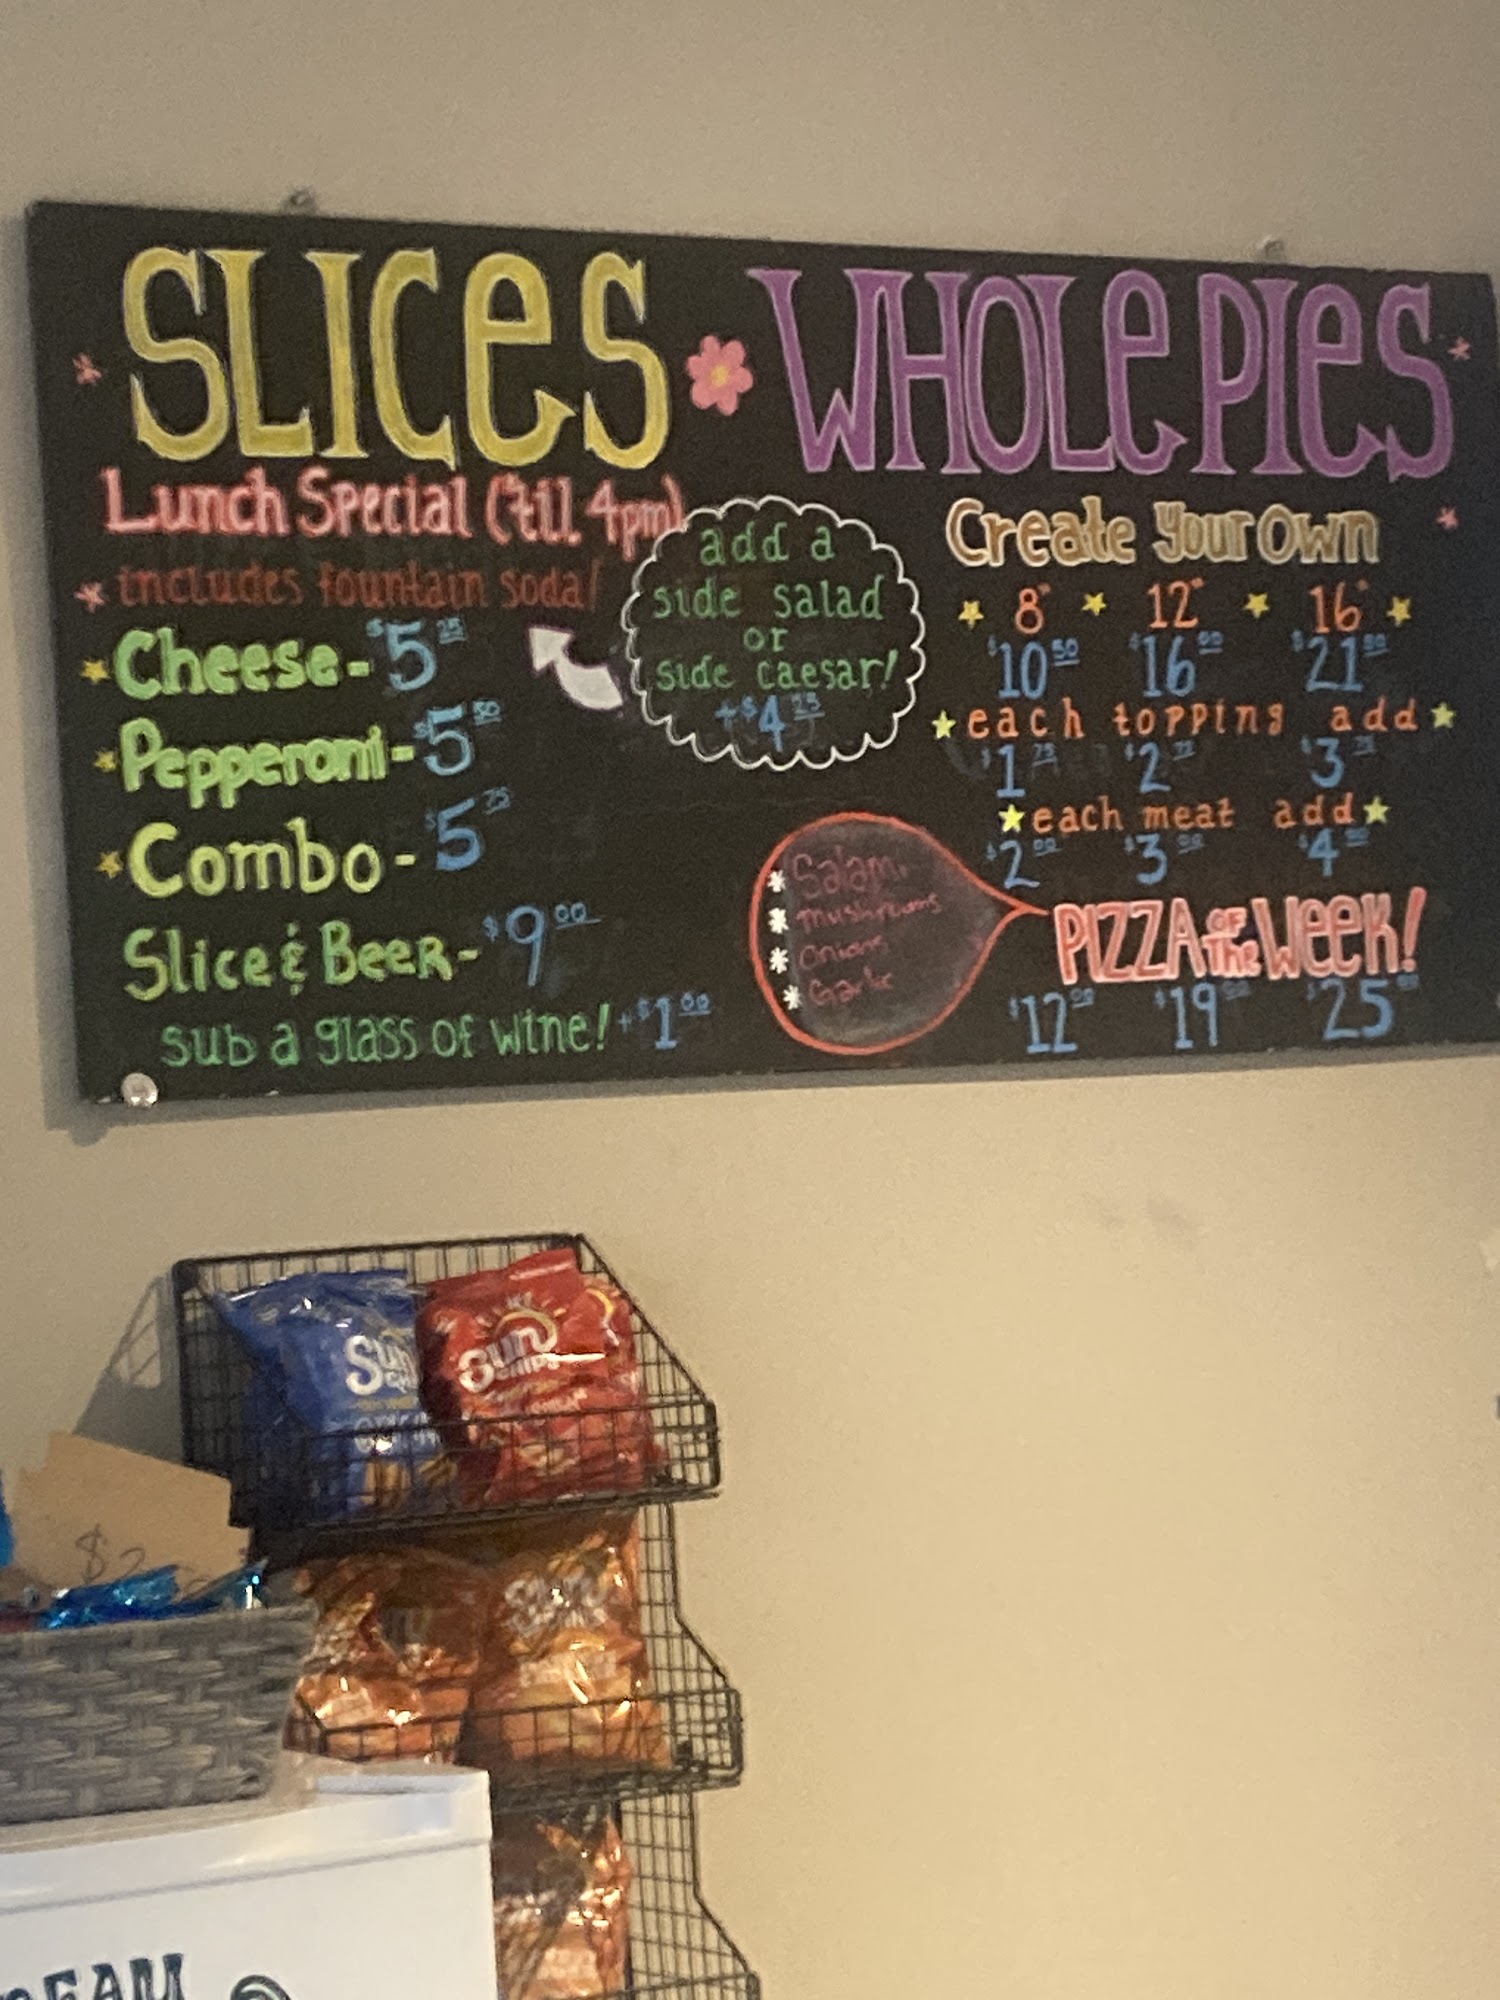 SLICES
Lunch Special ('til 4pm)
includes fountain soda!
Cheese - $5 25
Pepperoni - $5 50
Combo - $5 75
Slice & Beer - $9 00
sub a glass of wine! +$1 00
add a
side salad
or
side caesar!
+$4 25
WHOLE PIES
Create Your Own
8" 12" 16"
$10 50 $16 00 $21 50
each topping add
$1 75 $2 75 $3 75
each meat add
$2 00 $3 00 $4 00
PIZZA OF the WEEK!
$12 00 $19 00 $25
Salami
mushrooms
Onions
Garlic
Sun
Sun
CHIPS
$2